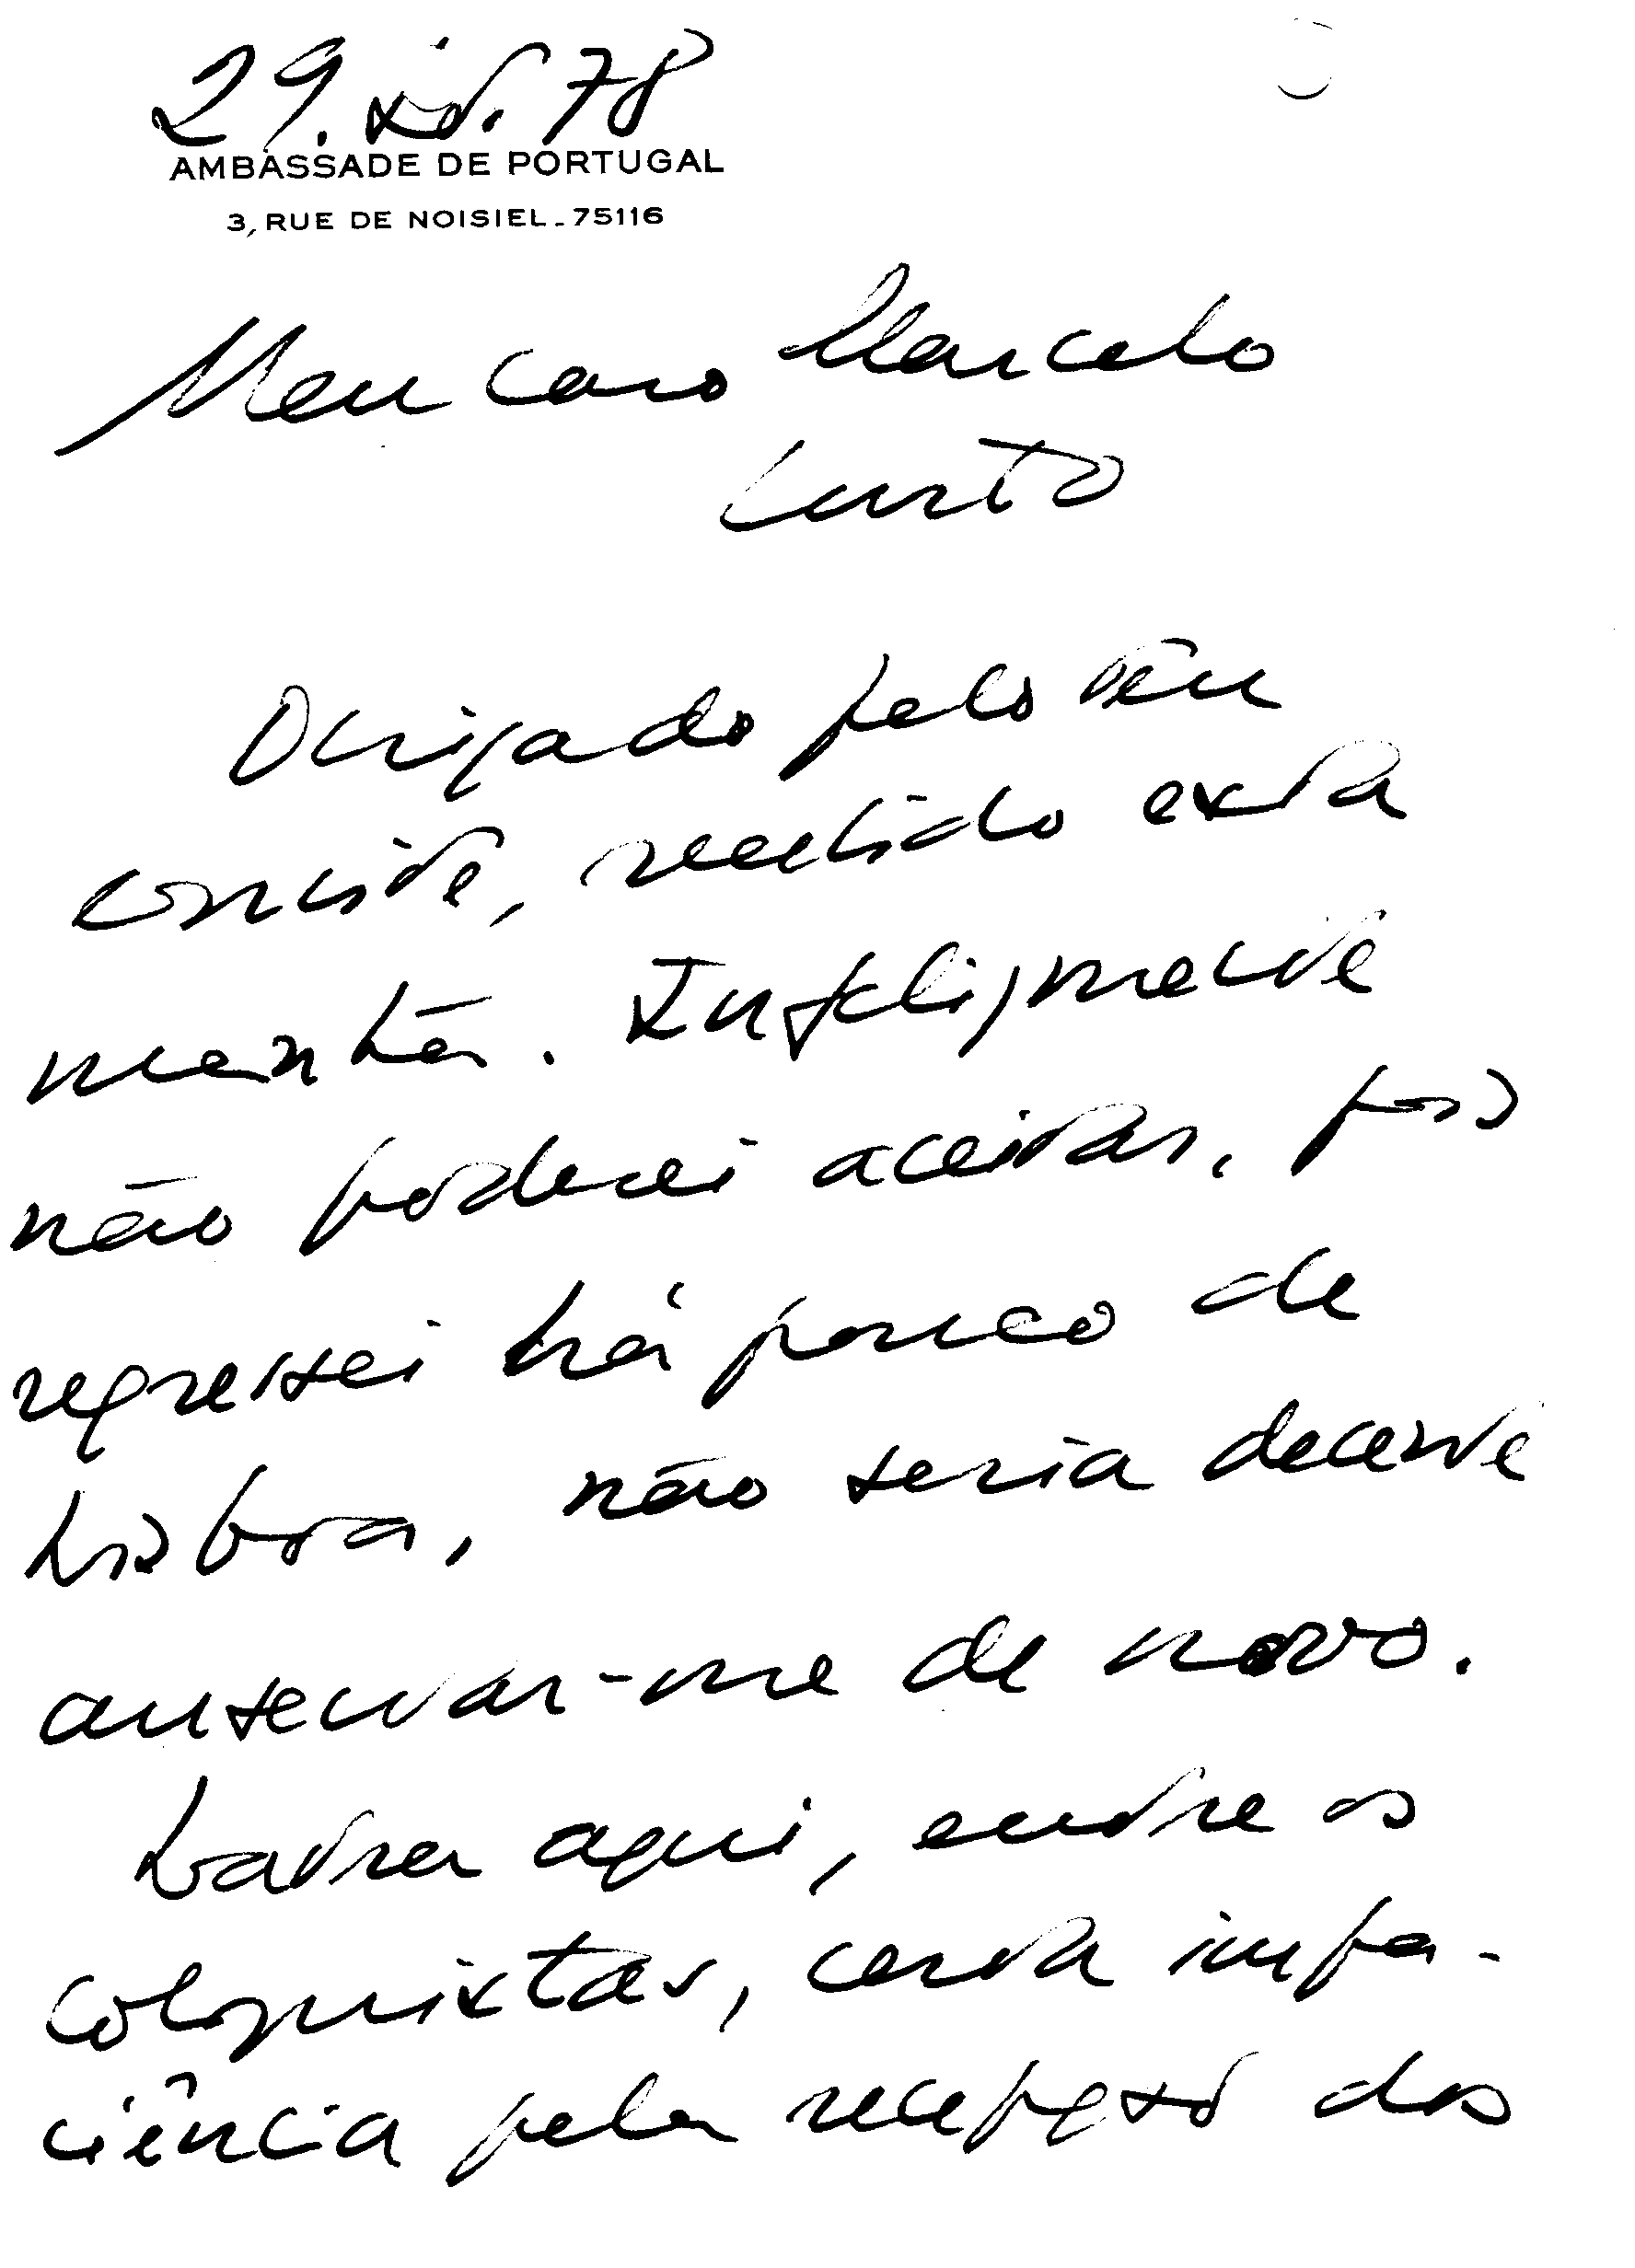 29. 78
AMBASSADE DE PORTUGAL
3, RUE DE NOISIEL - 75116
Meu caro Marcelo
Curto
Obrigado pelo seu
convite, recebido esta
manhã. Infelizmente
não poderei aceitar, pois
regressei há pouco de
Lisboa, não seria decente
ausentar-me de novo.
Lavra aqui, entre os
coloquistas, certa impa-
ciência pela recepção dos